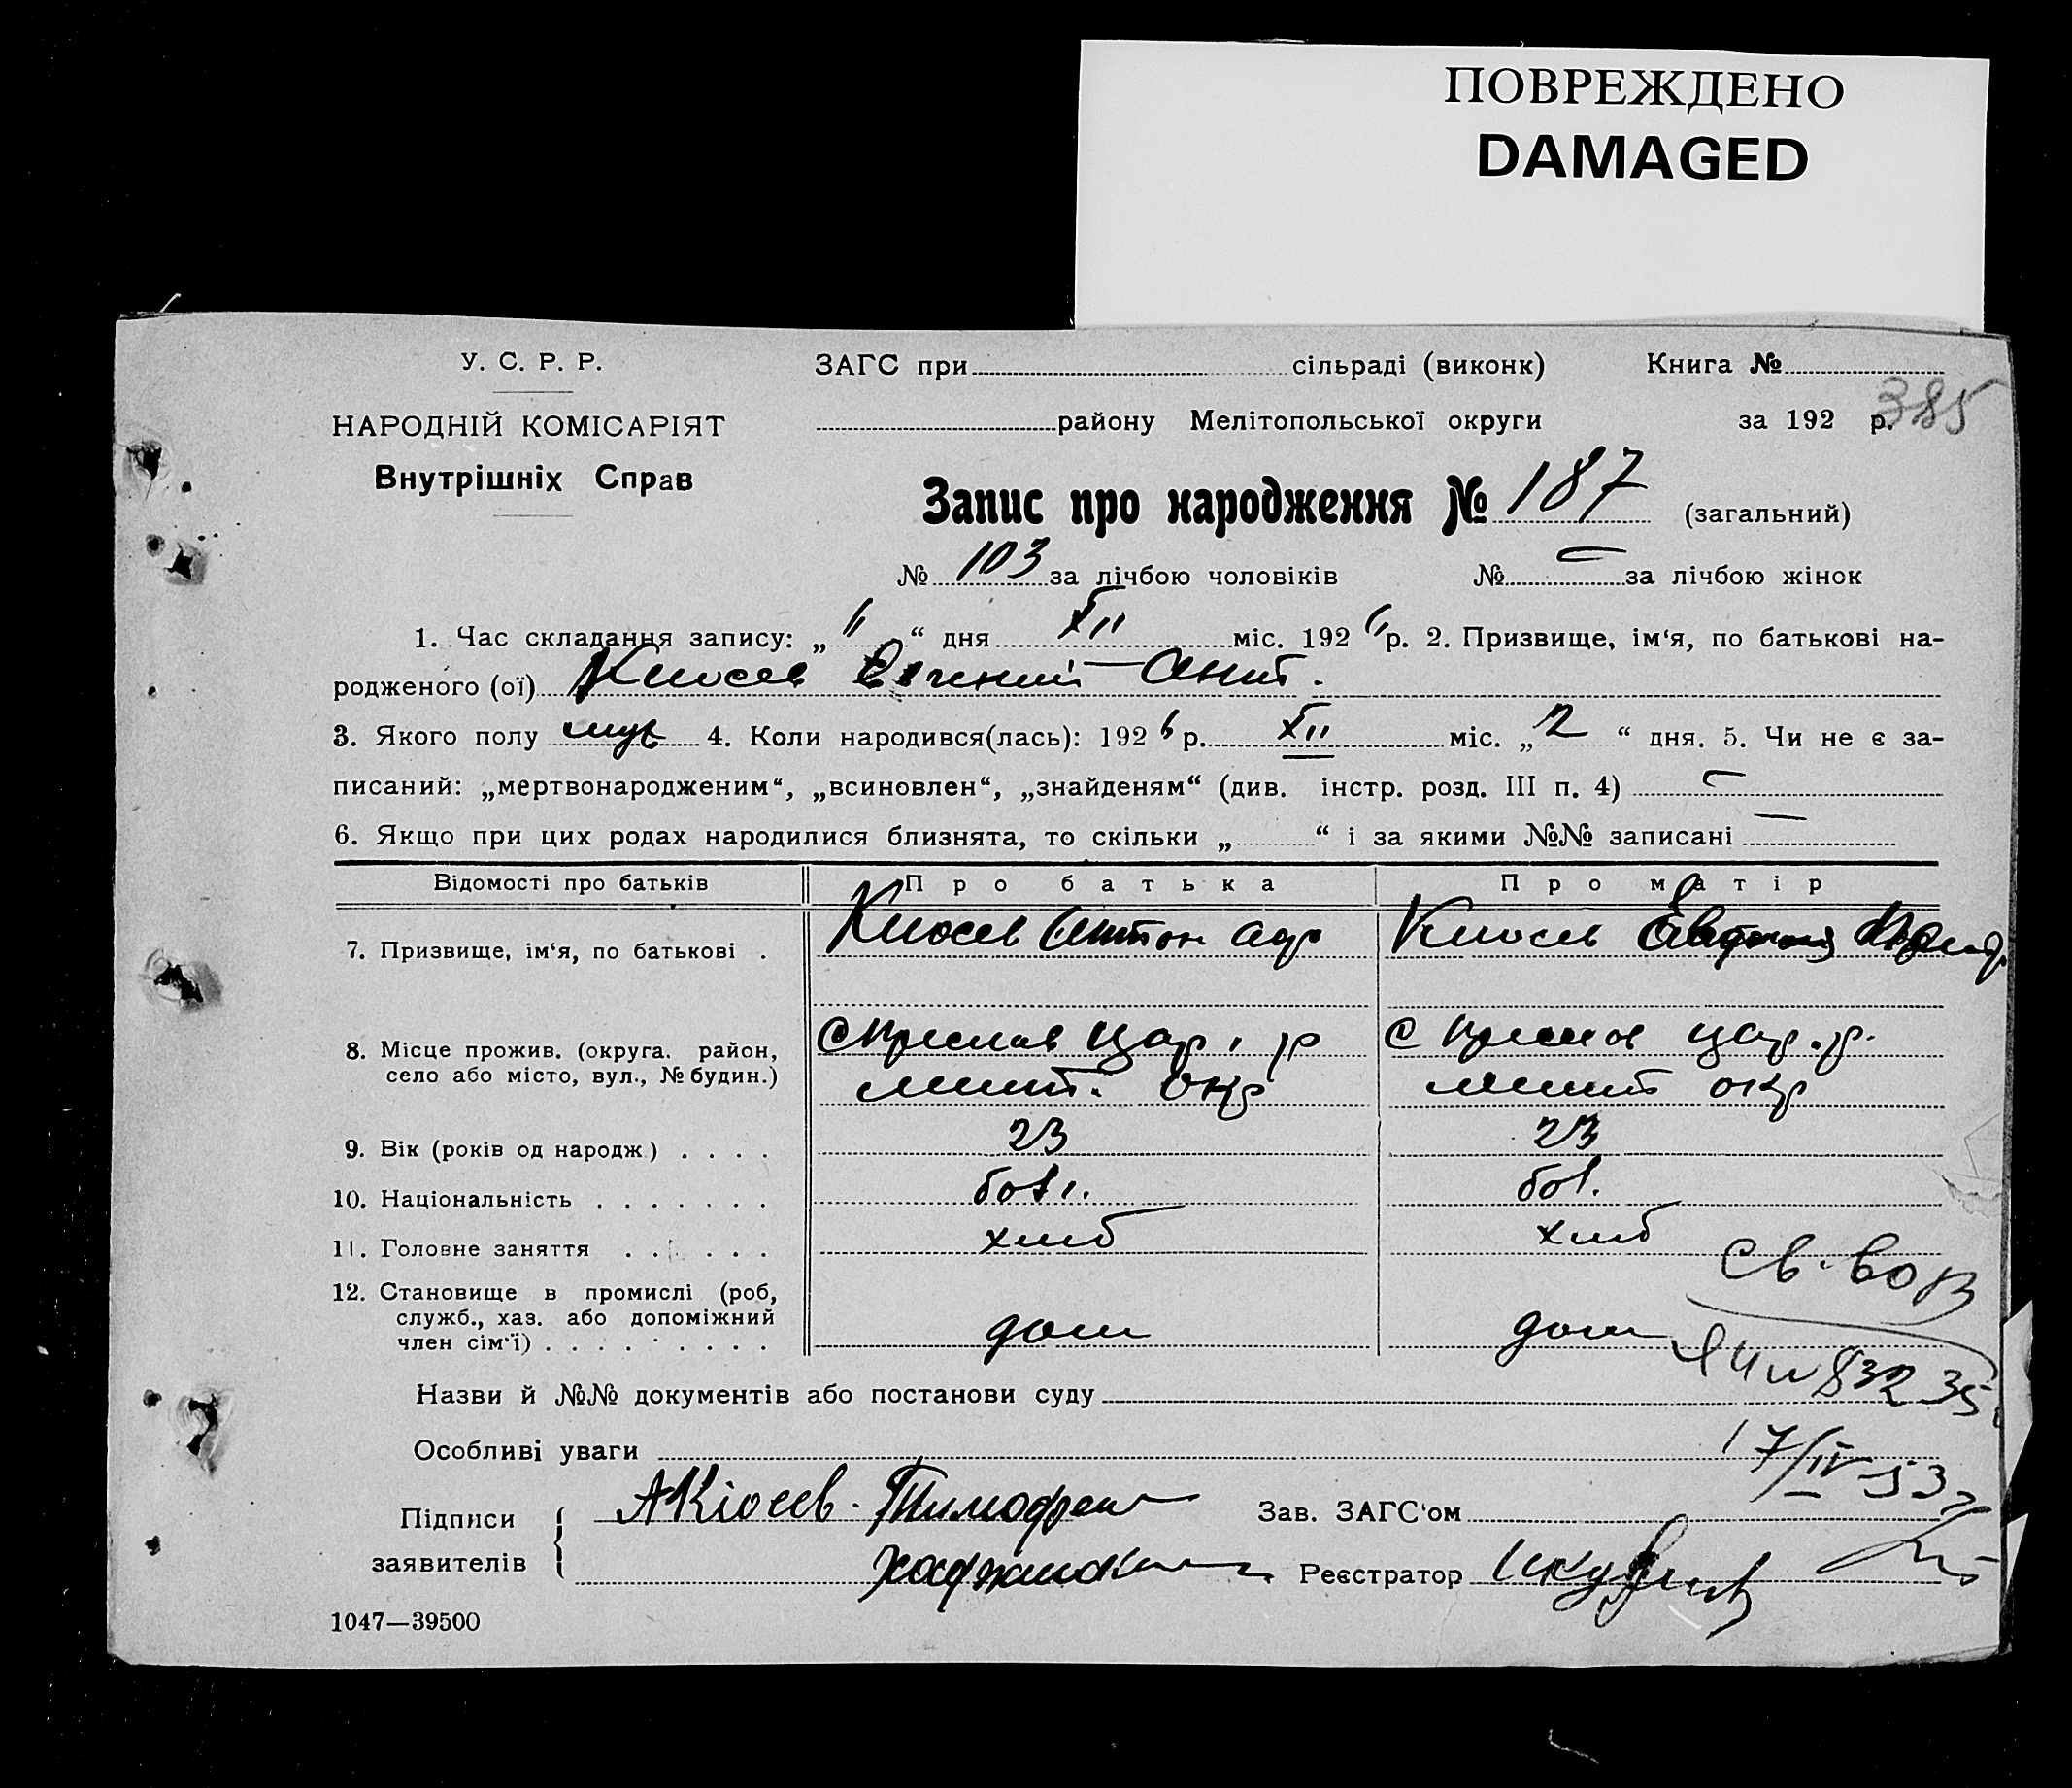 ПОВРЕЖДЕНО
DAMAGED
У. С. Р. Р.
НАРОДНІЙ КОМІСАРІЯТ
Внутрішніх Справ
ЗАГС при сільраді (виконк) Книга №
району Мелітопольської округи за 192 р.
385
Запис про народження № 187 (загальний)
№ 103 за лічбою чоловіків № за лічбою жінок
1. Час складання запису: „ 11 “ дня XII міс. 192 6 р. 2. Призвище, ім‘я, по батькові на-
родженого (ої) Киосев Евгений Ант.
3. Якого полу муж 4. Коли народився(лась): 192 6 р. XII міс. „ 2 “ дня. 5. Чи не є за-
писаний: „мертвонародженим“, „всиновлен“, „знайденям“ (див. інстр. розд. III п. 4) —
6. Якщо при цих родах народилися близнята, то скільки „ “ і за якими №№ записані —
Відомості про батьків Про батька Про матір
7. Призвище, ім‘я, по батькові . Киосев Антон Киосев
8. Місце прожив. (округа. район, село або місто, вул., № будин.)
с Преслав Цар. р с Преслав Цар. р.
мелит. окр мелит окр
9. Вік (років од народж) . . . . 23 23
10. Національність . . . . . . . бол. бол.
11. Головне заняття . . . . . . хліб хліб
12. Становище в промислі (роб,
служб., хаз. або допоміжний
член сім‘ї) . . . . . . . . . дом дом
Св. выд
Назви й №№ документів або постанови суду
Особливі уваги
17/IV 53
Підписи
заявителів
АКіосев. Тимофей
Зав. ЗАГС‘ом
Реєстратор
1047—39500